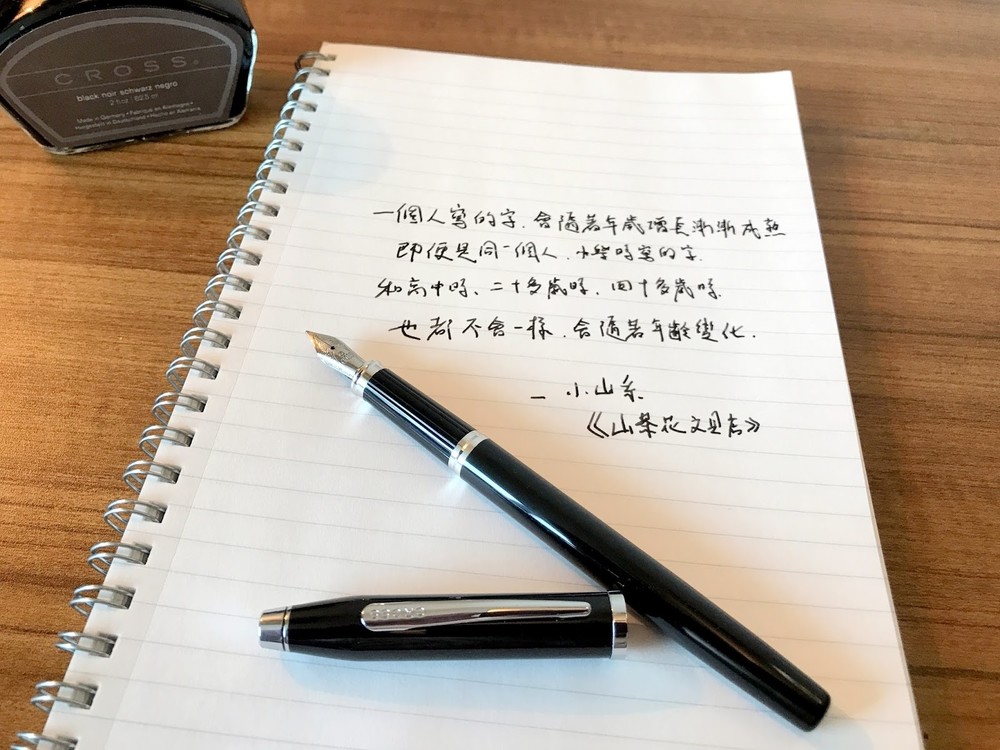 CROSS
black noir schwarz negro
2 fl oz | 62.5 ml
Made in Germany • Fabriqué en Allemagne •
Hergestellt in Deutschland • Hecho en Alemania
一個人寫的字.會隨著年歲增長漸漸成熟
即便是同一個人.小學時寫的字.
和高中時、二十多歲時.四十多歲時.
也都不會一樣.會隨著年齡變化.
— 小.山糸
《山茶花文具店》
CROSS